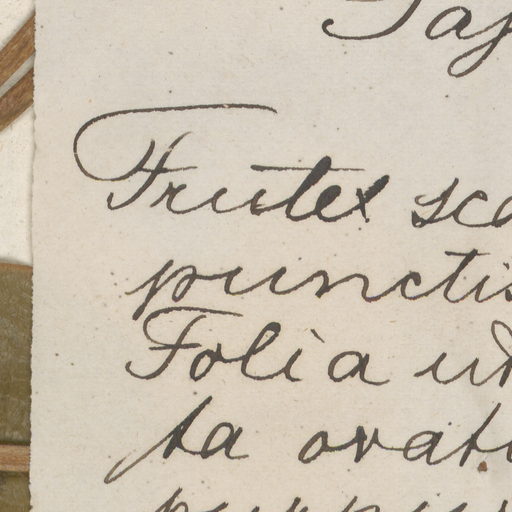 Frutex sca
punctis
Folia ut
ta ovat